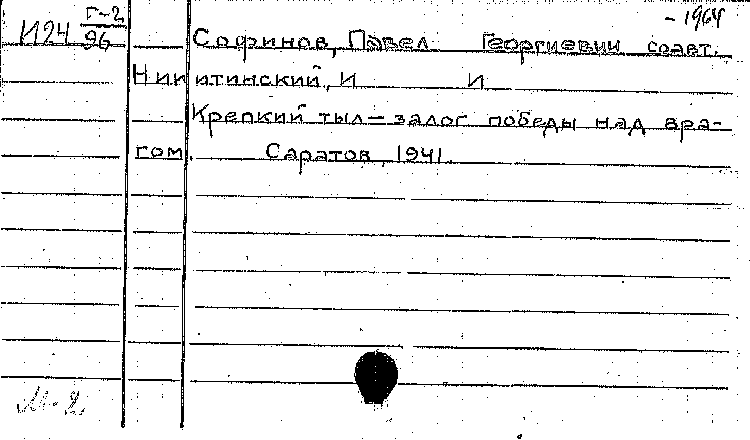 - 1964
И24 Г-2/96 Софинов, Павел Георгиевич совет.
Никитинский, И И
Крепкий тыл — залог победы над вра-
гом. Саратов, 1941.
М-2.